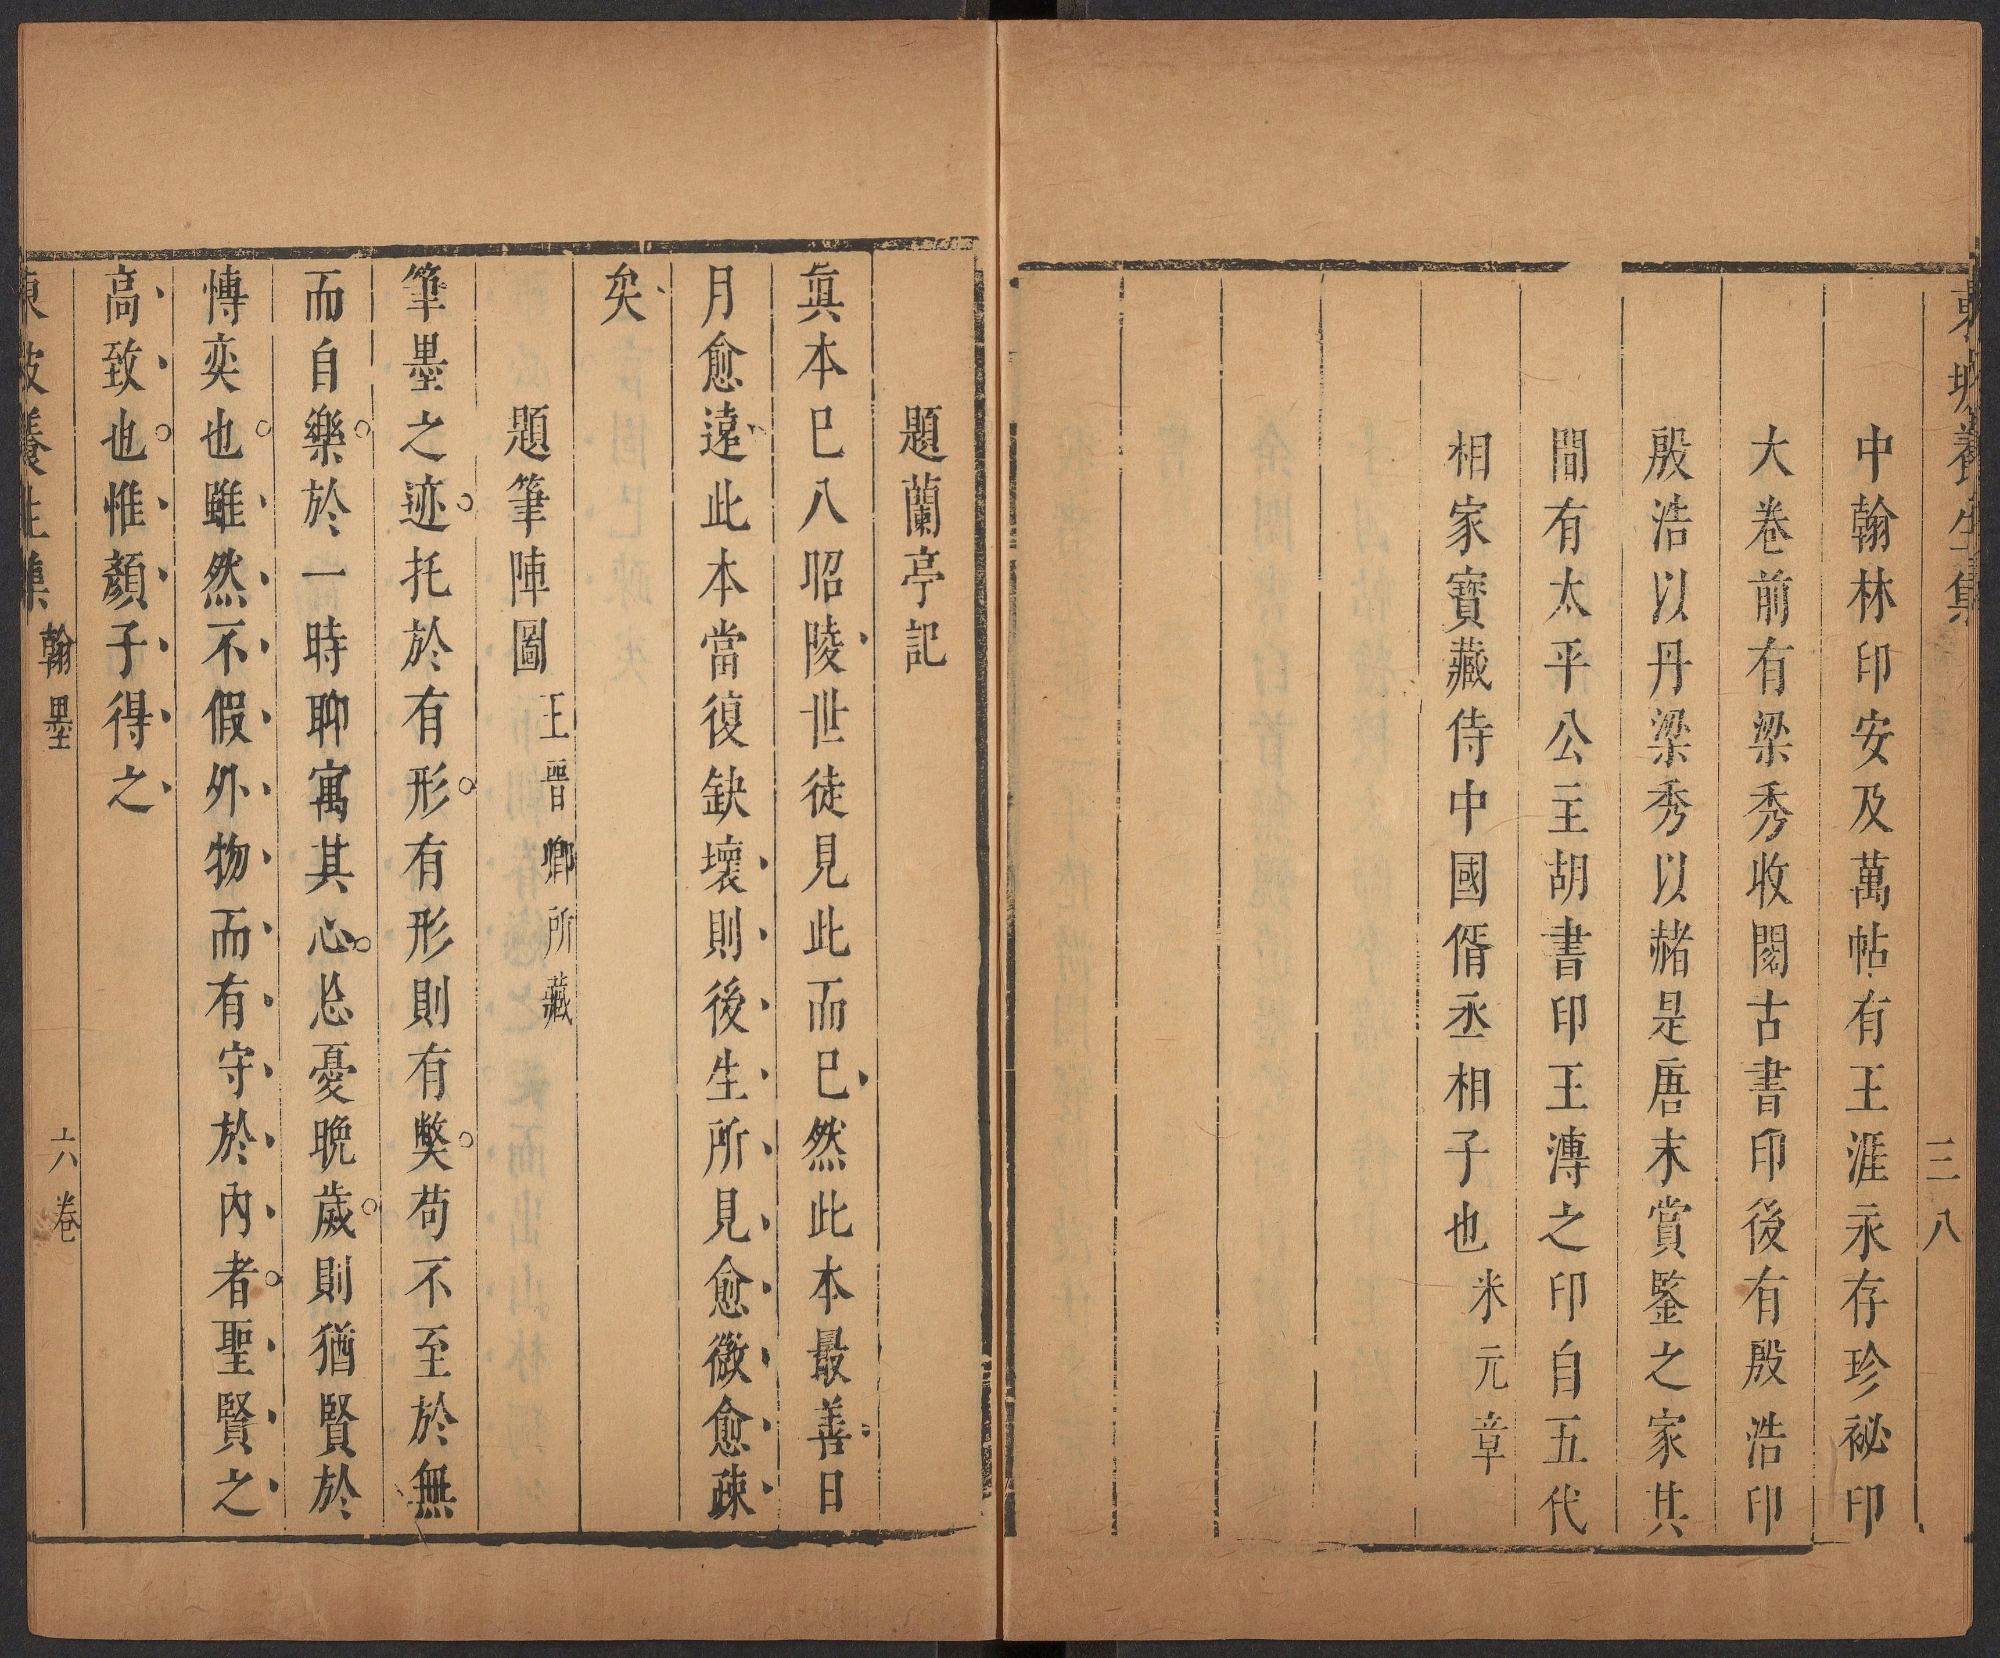 東坡養生集
三八
中翰林印安及萬帖有王涯永存珍祕印
大卷前有梁秀收閱古書印後有殷浩印
殷浩以丹梁秀以赭是唐末賞鑒之家其
間有太平公主胡書印王溥之印自五代
相家寶藏侍中國偦丞相子也米元章
題蘭亭記
眞本巳入昭陵世徒見此而巳然此本最善日
月愈遠此本當復缺壞則後生所見愈微愈疎
矣
題筆陣圖王晉卿所藏
筆墨之迹托於有形有形則有獘苟不至於無
而自樂於一時聊寓其心忩憂晩歲則猶賢於
愽奕也雖然不假外物而有守於內者聖賢之
高致也惟顏子得之
東坡養生集
翰墨
六卷